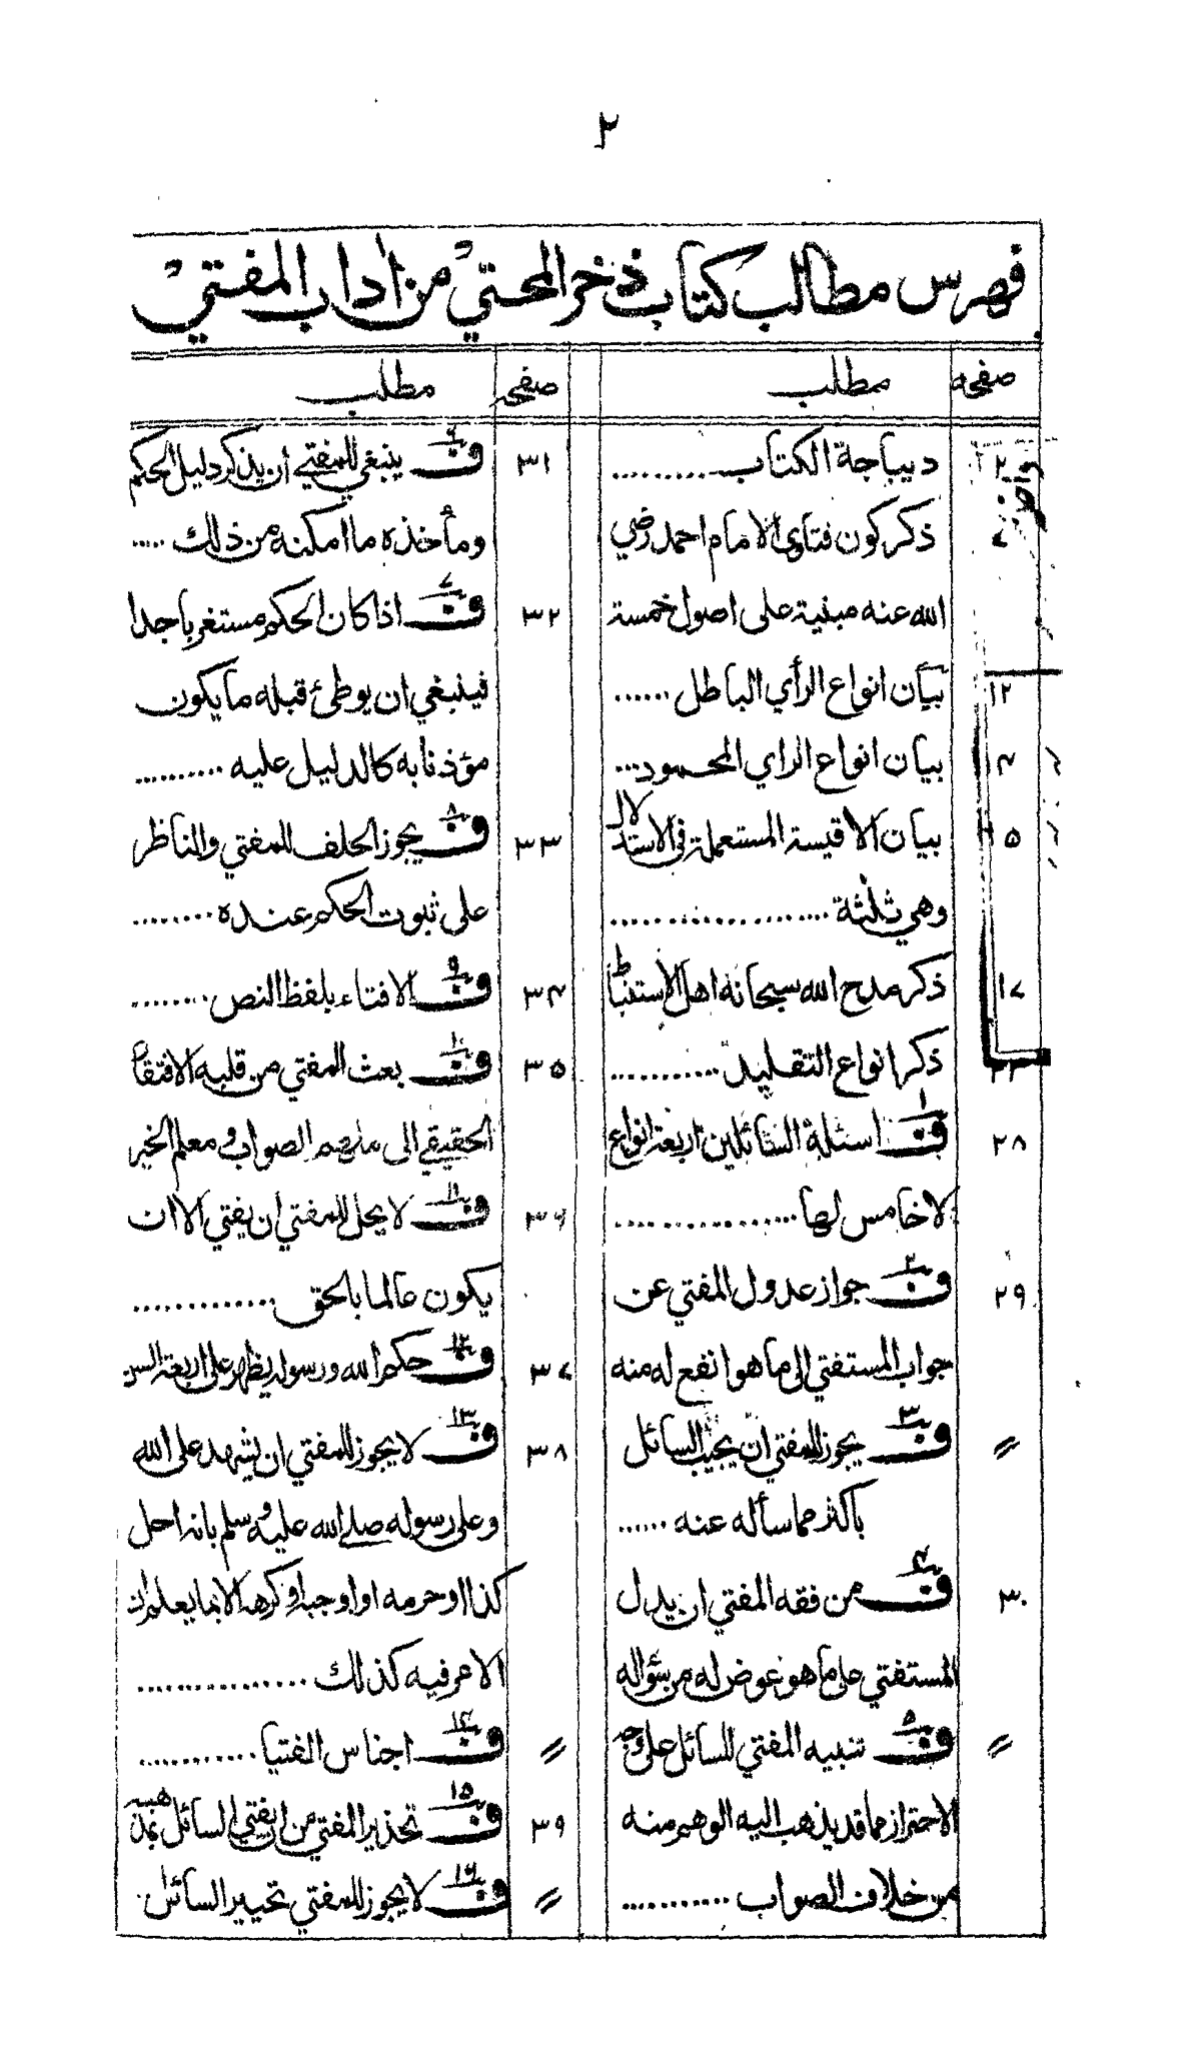 ٢
فهرس مطالب كتاب ذخر المحتي من اداب المفتي
صفحه مطلب
٢ ديباجة الكتاب .........
٧ ذكر كون فتاوى الامام احمد رضي
الله عنه مبنية على اصول خمسة
١٢ بيان انواع الرأي الباطل ......
١٤ بيان انواع الراي المحمود...
١٥ بيان الاقيسة المستعملة في الاستدلال
وهي ثلثة ....................
١٧ ذكر مدح الله سبحانه اهل الاستنباط
٢٣ ذكر انواع التقليد ...........
٢٨ ف١ اسئلة السائلين اربعة انواع
لا خامس لها .................
٢٩ ف٢ جواز عدول المفتي عن
جواب المستفتي الى ما هو انفع له منه
〃 ف٣ يجوز للمفتي ان يجيب السائل
باكثر مما سأله عنه ......
٣٠ ف٤ من فقه المفتي ان يدل
المستفتي على ما هو عوض له من سؤاله
〃 ف٥ تنبيه المفتي للسائل على وجه
الاحتراز مما قد يذهب اليه الوهم منه
من خلاف الصواب ...........
صفحه مطلب
٣١ ف٦ ينبغي للمفتي ان يذكر دليل الحكم
ومأخذه ما امكنه من ذلك .....
٣٢ ف٧ اذا كان الحكم مستغربا جدا
فينبغي ان يوطئ قبله ما يكون
مؤذنا به كالدليل عليه ..........
٣٣ ف٨ يجوز الحلف للمفتي والناظر
على ثبوت الحكم عنده .........
٣٤ ف٩ الافتاء بلفظ النص ........
٣٥ ف١٠ بعث المفتي من قلبه الافتقار
الحقيقي الى ملهم الصواب ومعلم الخير
٣٦ ف١١ لا يحل للمفتي ان يفتي الا ان
يكون عالما بالحق .............
٣٧ ف١٢ حكم الله ورسوله يظهر على اربعة السن
٣٨ ف١٣ لا يجوز للمفتي ان يشهد على الله
وعلى رسوله صلى الله عليه وسلم بانه احل
كذا او حرمه او اوجبه او كرهه الا بما يعلم ان
الامر فيه كذلك ................
〃 ف١٤ اجناس الفتيا ............
٣٩ ف١٥ تحذير المفتي من ان يفتي السائل بمذهبه
〃 ف١٦ لا يجوز للمفتي تخيير السائل